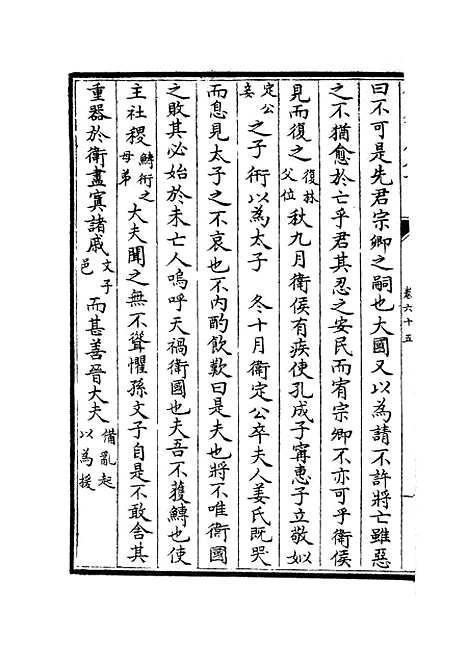 曰不可是先君宗卿之嗣也大國又以為請不許將亡雖惡
之不猶愈於亡乎君其忍之安民而宥宗卿不亦可乎衛侯
見而復之復林父位秋九月衛侯有疾使孔成子甯惠子立敬姒
定公妾之子衎以為太子　冬十月衛定公卒夫人姜氏既哭
而息見太子之不哀也不內酌飲歎曰是夫也將不唯衛國
之敗其必始於未亡人嗚呼天禍衛國也夫吾不獲鱄也使
主社稷鱄衎之母弟大夫聞之無不聳懼孫文子自是不敢舍其
重器於衛盡寘諸戚文子邑而甚善晉大夫備亂起以為援
卷六十五